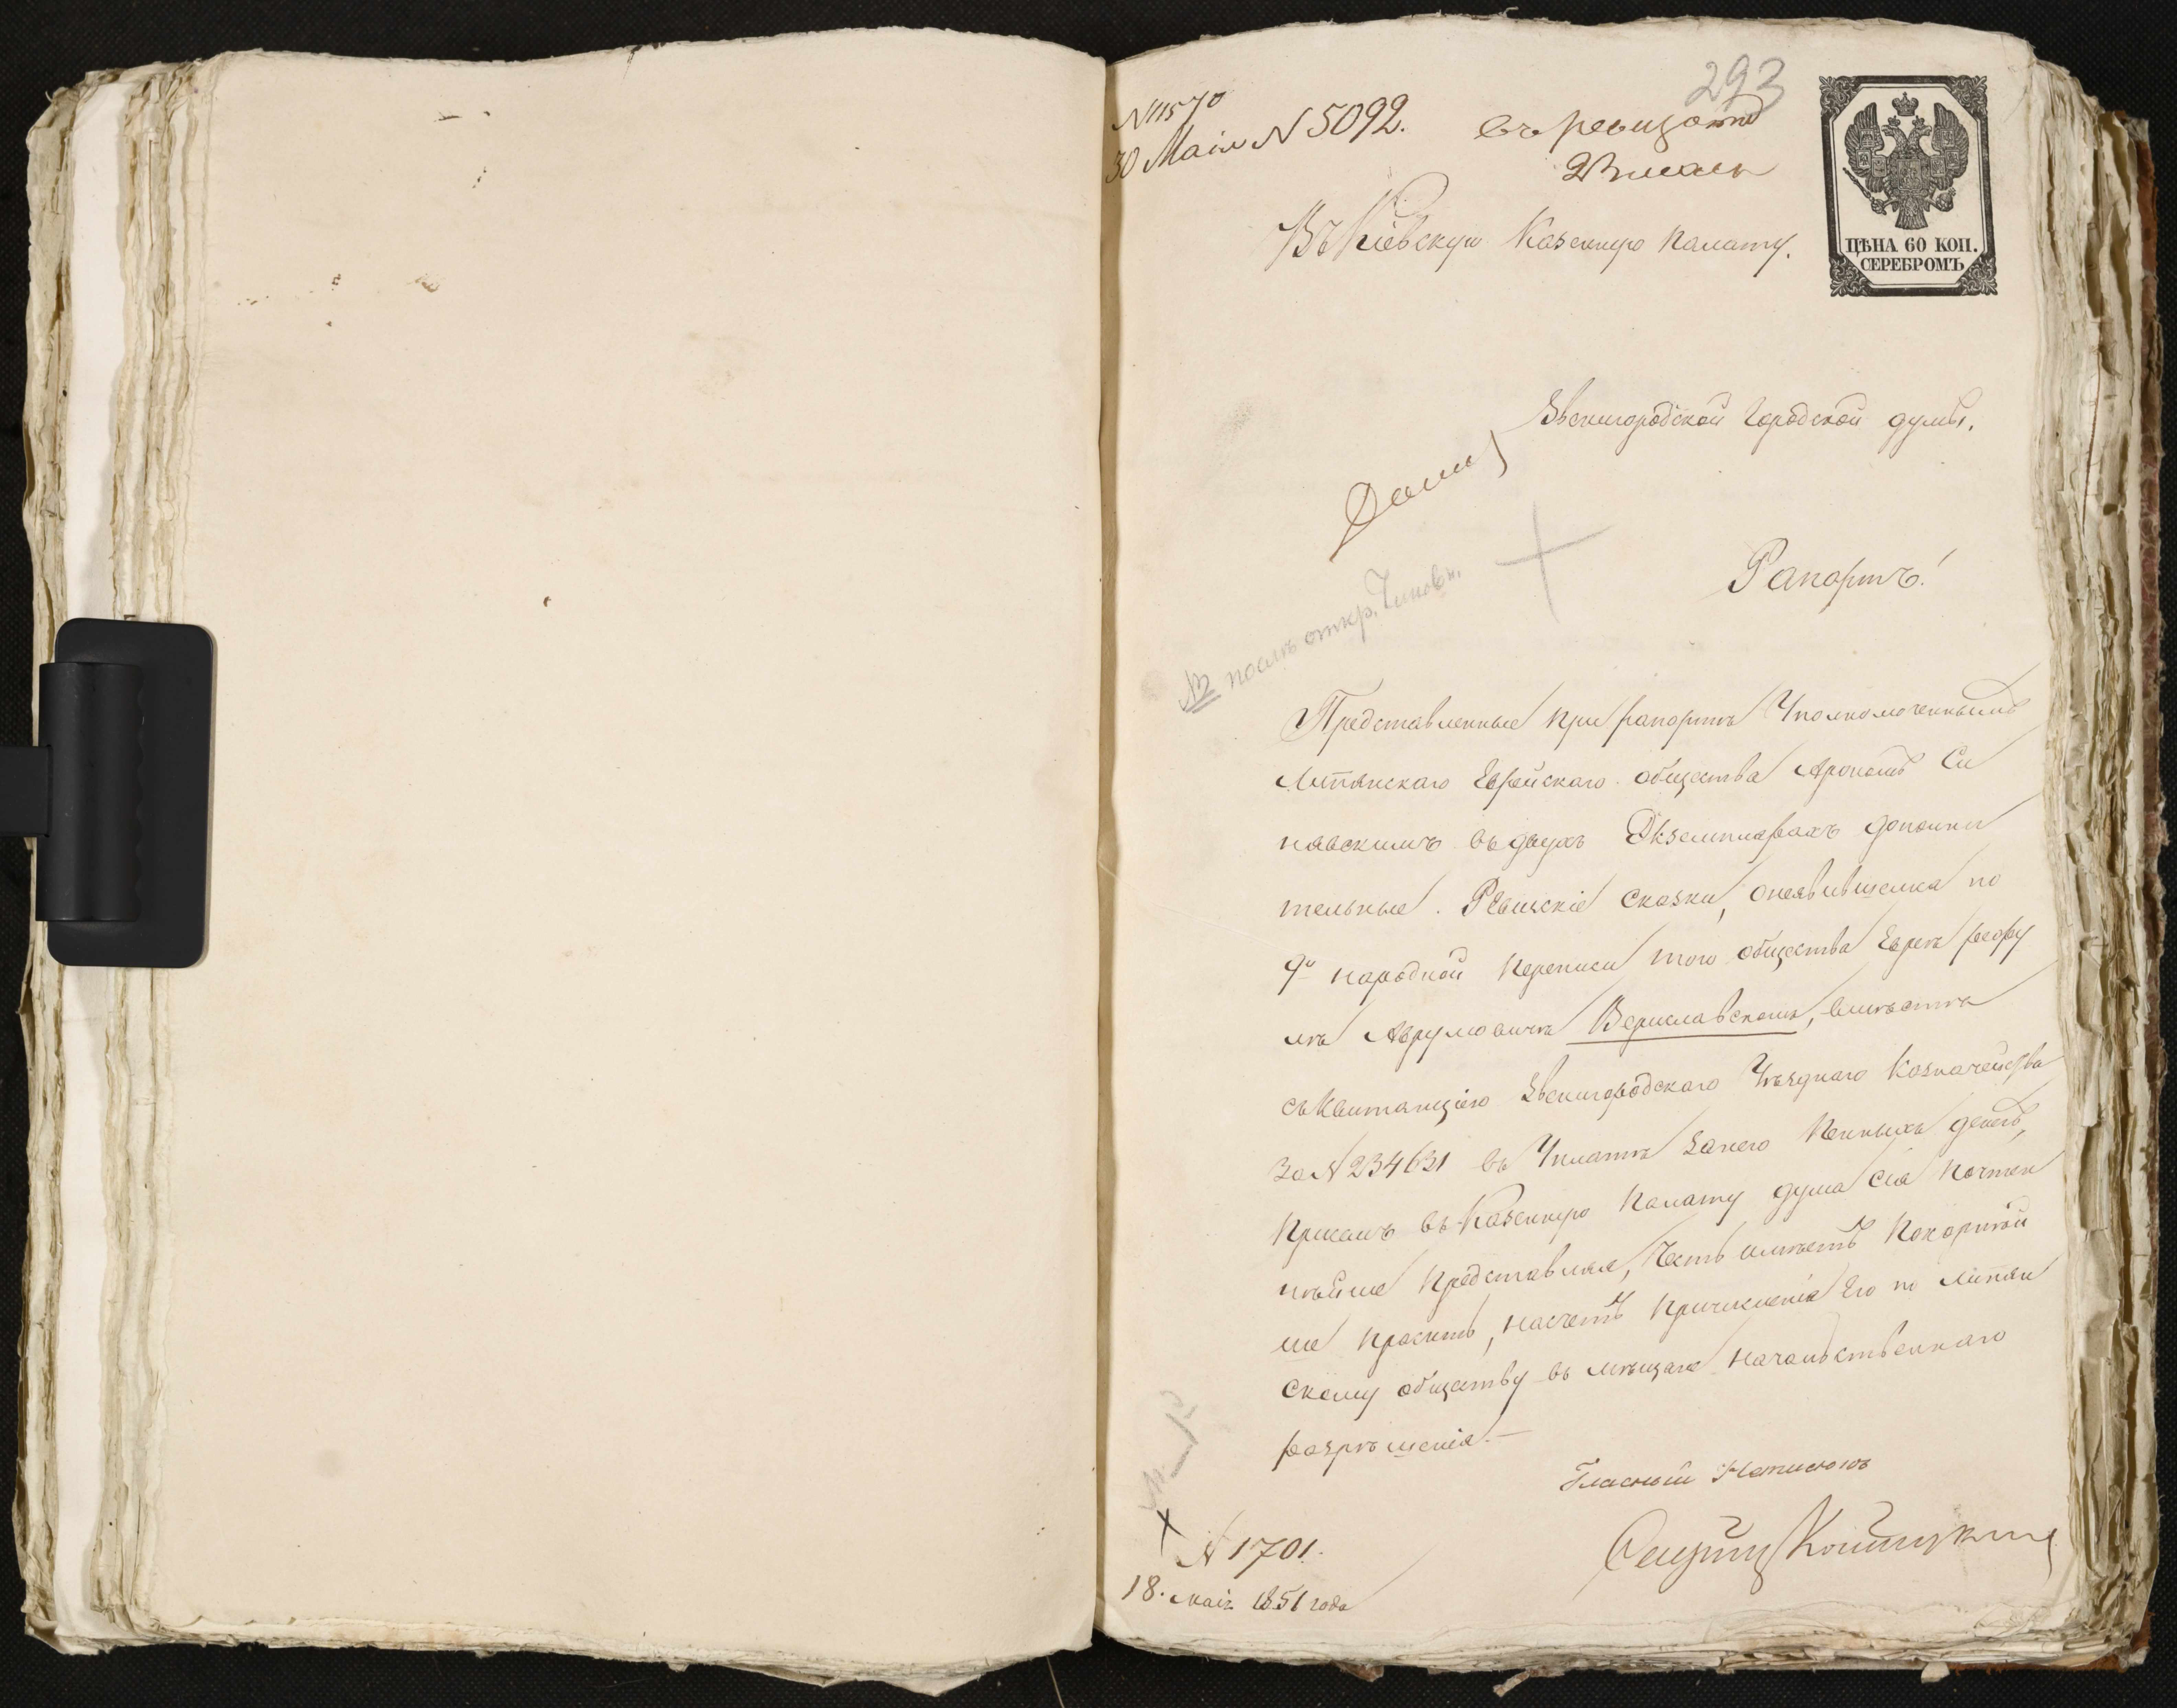 293
N 11570
30 Маія N 5092.
въ ревиз. отд
ЦѢНА 60 КОП.
СЕРЕБРОМЪ
Въ Кіевскую Казенную Палату.
Звенигородской Городской думы,
Рапортъ!
Представленные при рапортѣ Уполномоченнымъ
Лыпянскаго Еврейскаго общества Арономъ Си
нявскимъ въ двухъ Экземплярахъ дополни
тельные Ревизскіе сказки, о неявившемся по
9й народной переписи того общества Евреѣ
Аврумовичѣ Вериславскомъ, вмѣстѣ
съ Квитанціею Звенигородскаго Уѣзднаго Казначейства
за N 234631 въ Уплатѣ за него Пенныхъ денегъ,
при семъ въ Казенную Палату дума сія почтен
нѣйше представляя, Честь имѣетъ Покорнѣй
ше просить, насчетъ причисленія Его по Лыпян
скому обществу въ мѣщане начальственнаго
разрѣшенія.—
Гласный
N 1701.
18. маія 1851 года